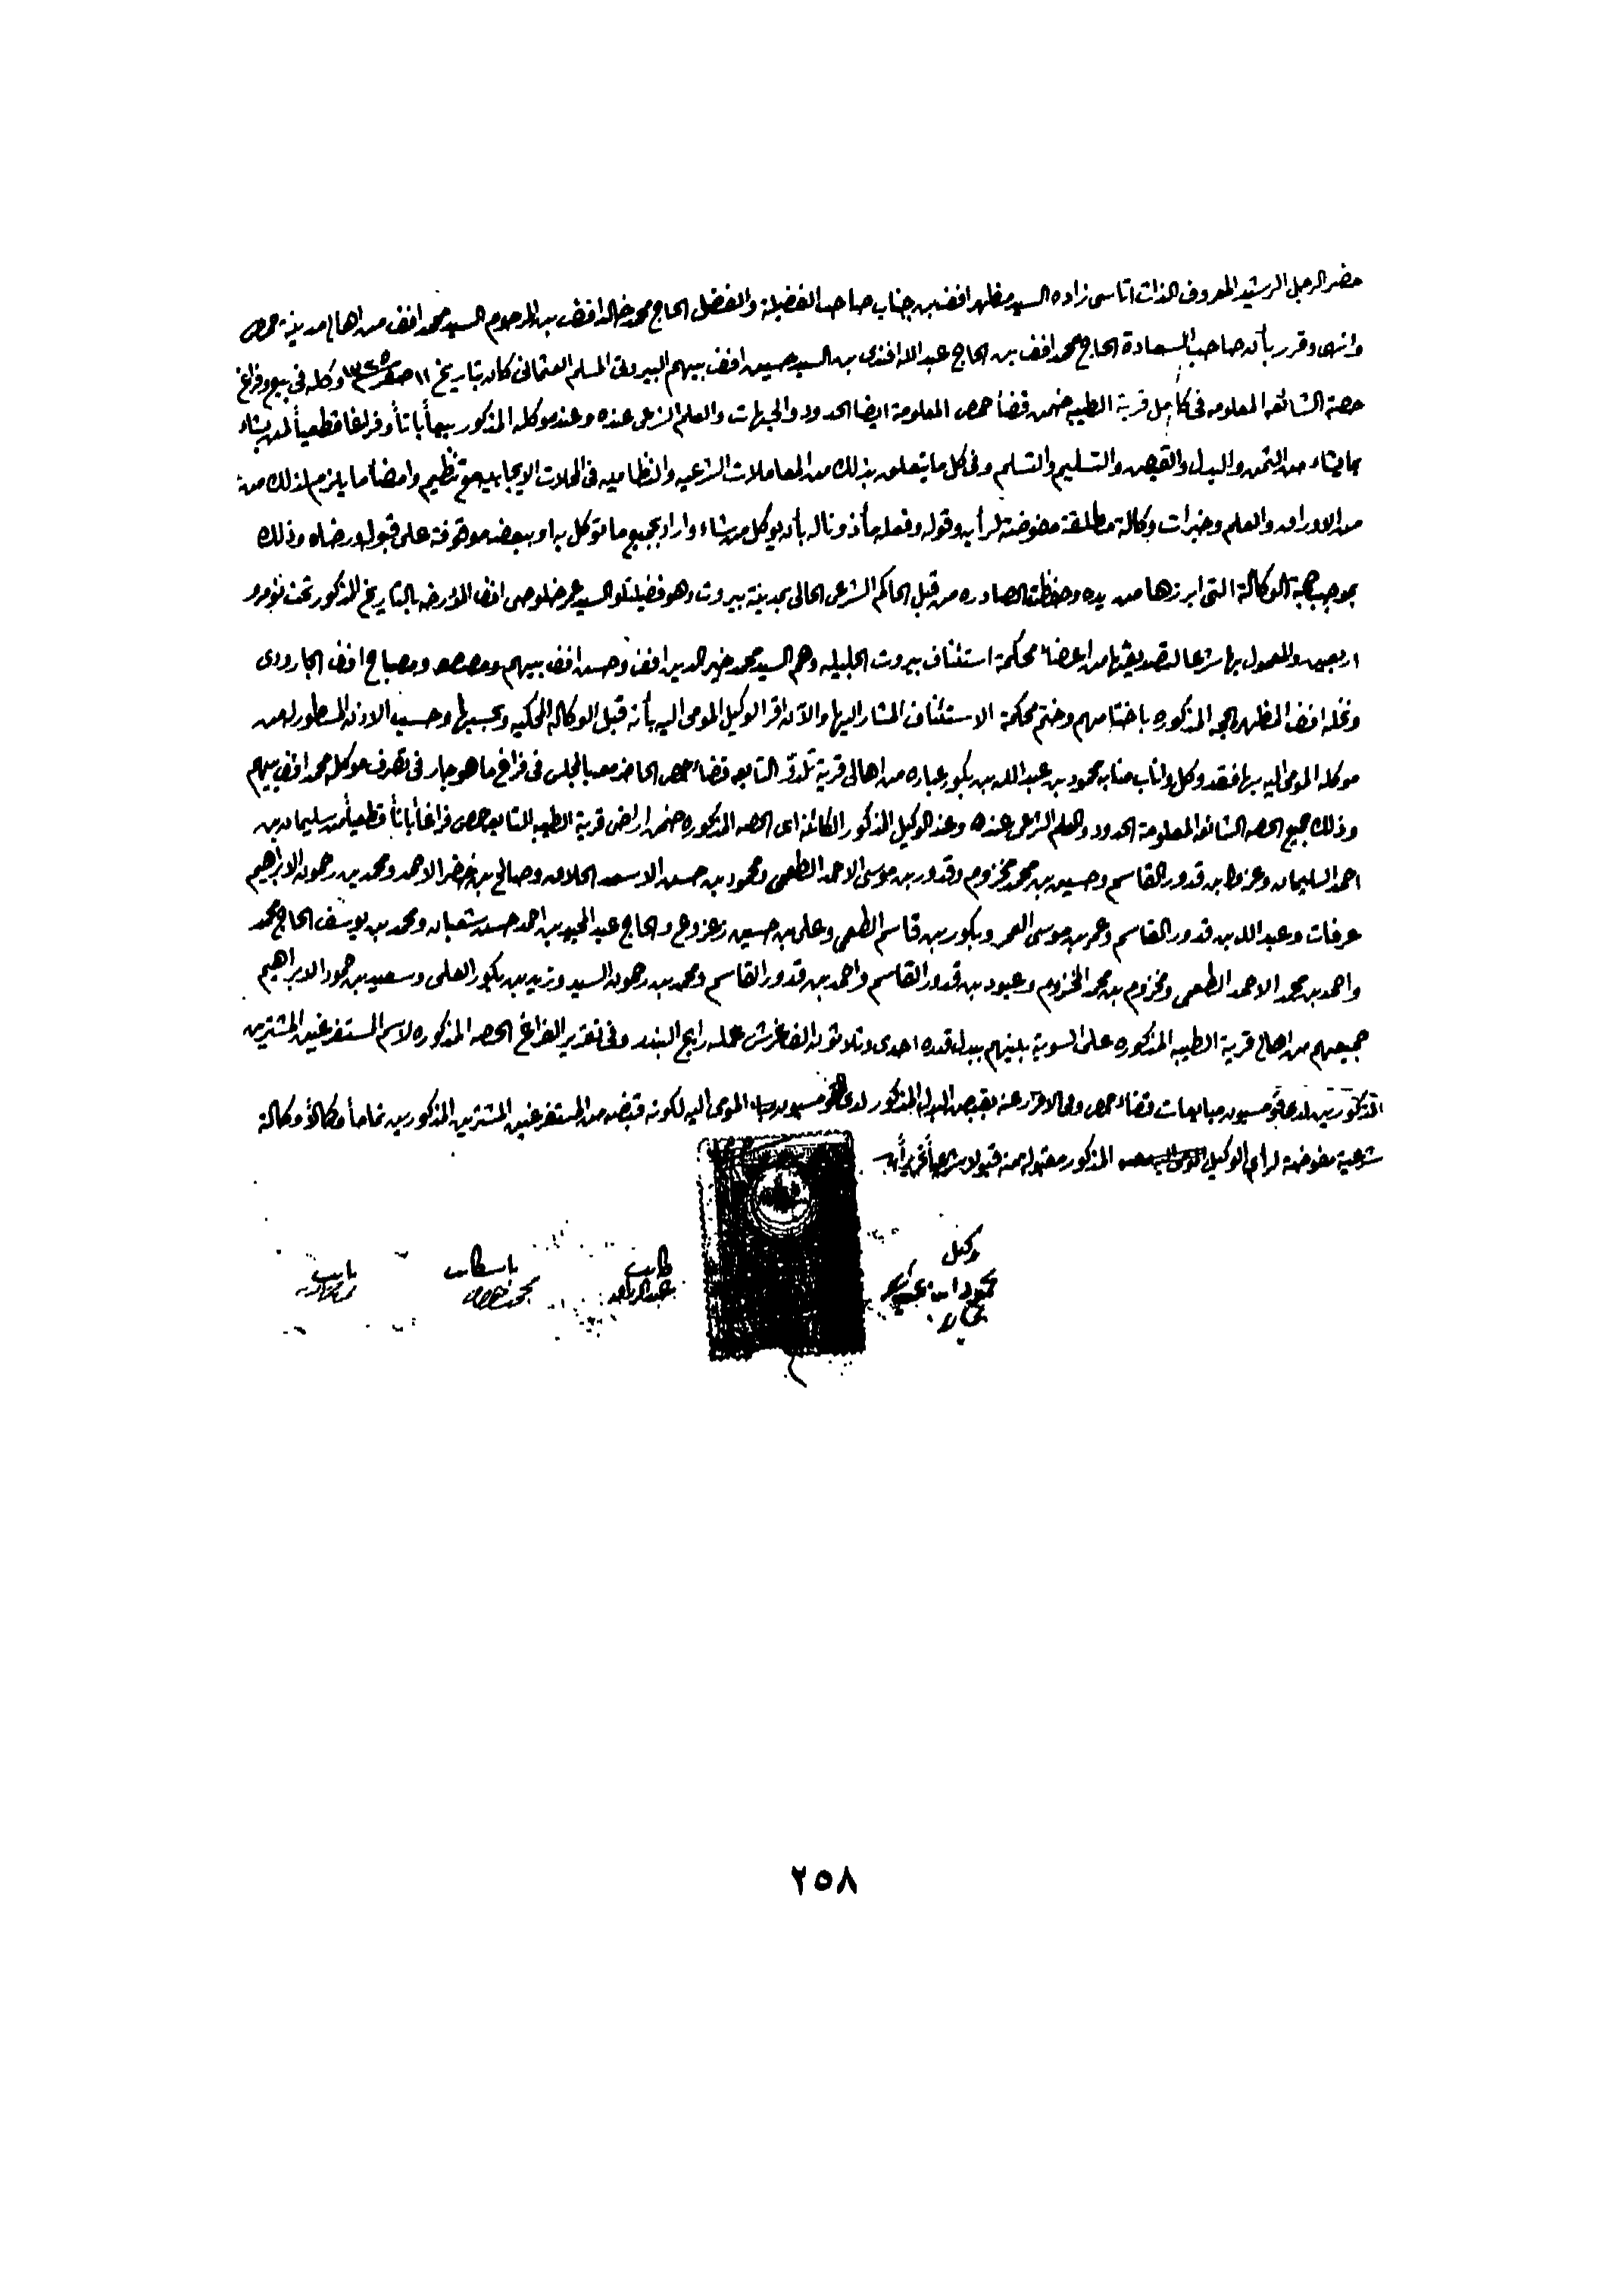 حضر الرجل الرشيد المعروف الذات اتاسى زاده السيد مظهر افندى بن جناب صاحب الفضيلة والفضل الحاج محمد خالد افندى بن المرحوم السيد محمد افندى من اهالي مدينة حمص
وانهى وقرر بأن صاحب السعادة الحاج محمد افندى بن الحاج عبدالله افندى بن السيد حسين افندى بيهم البيروتى المسلم العثمانى كان بتاريخ ١١ صفر وكله فى بيع وفراغ
حصة الشائعه المعلومه فى كامل قرية الطيبه ضمن قضأ حمص المعلومة ايضا الحدود والجهات والعلم الشرعى عنده وعند موكله المذكور بيعاً باتاً وفراغا قطعياً لمن يشاء
بما يشاء من الثمن والبدل والقبض والتسليم والتسلم وفى كل ما يتعلق بذلك من المعاملات الشرعيه والنظاميه فى المحلات الايجابيه مع تنظيم وامضأ ما يلزم لذلك من
من الاوراق والعلم وخبرات وكالة مطلقة مفوضة لرأيه وقوله وفعله مأذونا له بأن يوكل من شاء واراد بجميع ما توكل به او ببعضه موقوفة على قبوله ورضاه وذلك
بموجب حجة الوكالة التى ابرزها من يده وحفظت الصادره من قبل الحاكم الشرعى الحالى بمدينة بيروت وهو فضيلتلو السيد عمر خلوصى افندى المؤرخه بالتاريخ المذكور تحت نومرو
اربعين والمعمول بها شرعا لتصديقها من اعضأ محكمة استئناف بيروت الجليله وهم السيد محمد خير الدين افندى وحسن افندى بيهم ومصباح افندى الجارودى
ونخله افندى المظهره الحجه المذكوره باختامهم وختم محكمة الاستئناف المشار اليها والآن اقر الوكيل المومى اليه بأنه قبل الوكاله المحكيه وبحسبها وحسب الاذن المسطور له من
موكله المومى اليه بها فقد وكل واناب منابه محمود بن عبدالله بن بكور عباره من اهالى قرية تلدو التابعه قضاء حمص الحاضر معه بالمجلس فى فراغ ما هو جار فى تصرف موكله محمد افندى بيهم
وذلك جميع الحصه الشائعه المعلومة الحدود والعلم الشرعى عنده وعند الوكيل المذكور الكائنة اى الحصه المذكوره ضمن اراضى قرية الطيبه التابعه حمص فراغاً باتاً قطعياً من سليمان بن
احمد السليمان وعزو بن قدور القاسم وحسين بن محمد مخزوم وقدور بن موسى الاحمد الطعمى ومحمود بن حسن الاسعد الحلاق وصالح بن خضر الاحمد ومحمد بن رحمون الابراهيم
عرفات وعبدالله بن قدور القاسم وعمر بن موسى العمر وبكور بن قاسم الطعمى وعلى بن حسين زعزوع والحاج عبد المجيد بن احمد حسن شعبان ومحمد بن يوسف الحاج محمد
واحمد بن محمد الاحمد الطعمى ومخزوم بن محمد المخزوم وعبود بن قدور القاسم واحمد بن قدور القاسم ومحمد بن رحمون السيد وزيد بن بكور العلى وسعيد بن حمود الابراهيم
جميعهم من اهالى قرية الطيبه المذكوره على السوية بينهم ببدل قدره احدى وثلاثون الف غرش عمله رايج البندر وفى تقرير الفراغ الحصه المذكوره لاسم المستفرغين المشترين
المذكورين لدى قومسيون مبايعات قضاء حمص وفى الاقرار عنه بقبض البدل المذكور لدى القومسيون المومى اليه لكونه قبضه من المستفرغين المشترين المذكورين تماما وكمالا وكالة
شرعية مفوضة لراى الوكيل المذكور مقبوله منه قبولا شرعيا
وكيل
محمود ابن
عباره
كاتب
باشكاتب
نايب
٢٥٨